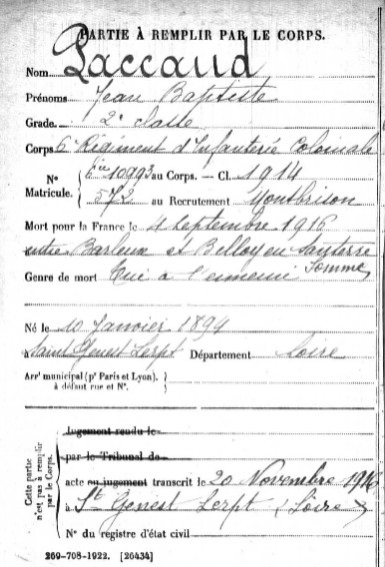 PARTIE À REMPLIR PAR LE CORPS.
Nom Paccaud
Prénoms Jean Baptiste
Grade 2e classe
Corps 6e Régiment d'Infanterie Coloniale
N° 10993 au Corps. — Cl. 1914
Matricule. 572 au Recrutement Montbrison
Mort pour la France le 4 septembre 1916
entre Barleux et Belloy en Santerre
Somme
Genre de mort Tué à l'ennemi
Né le 10 Janvier 1894
à Saint Genest Lerpt Département Loire
Arrt municipal (pr Paris et Lyon).
à défaut rue et N°.
Cette partie
n'est pas à remplir
par le Corps.
Jugement rendu le
par le Tribunal de
acte ou jugement transcrit le 20 Novembre 1916
à St Genest Lerpt (Loire)
N° du registre d'état civil
269-708-1922. [26434]